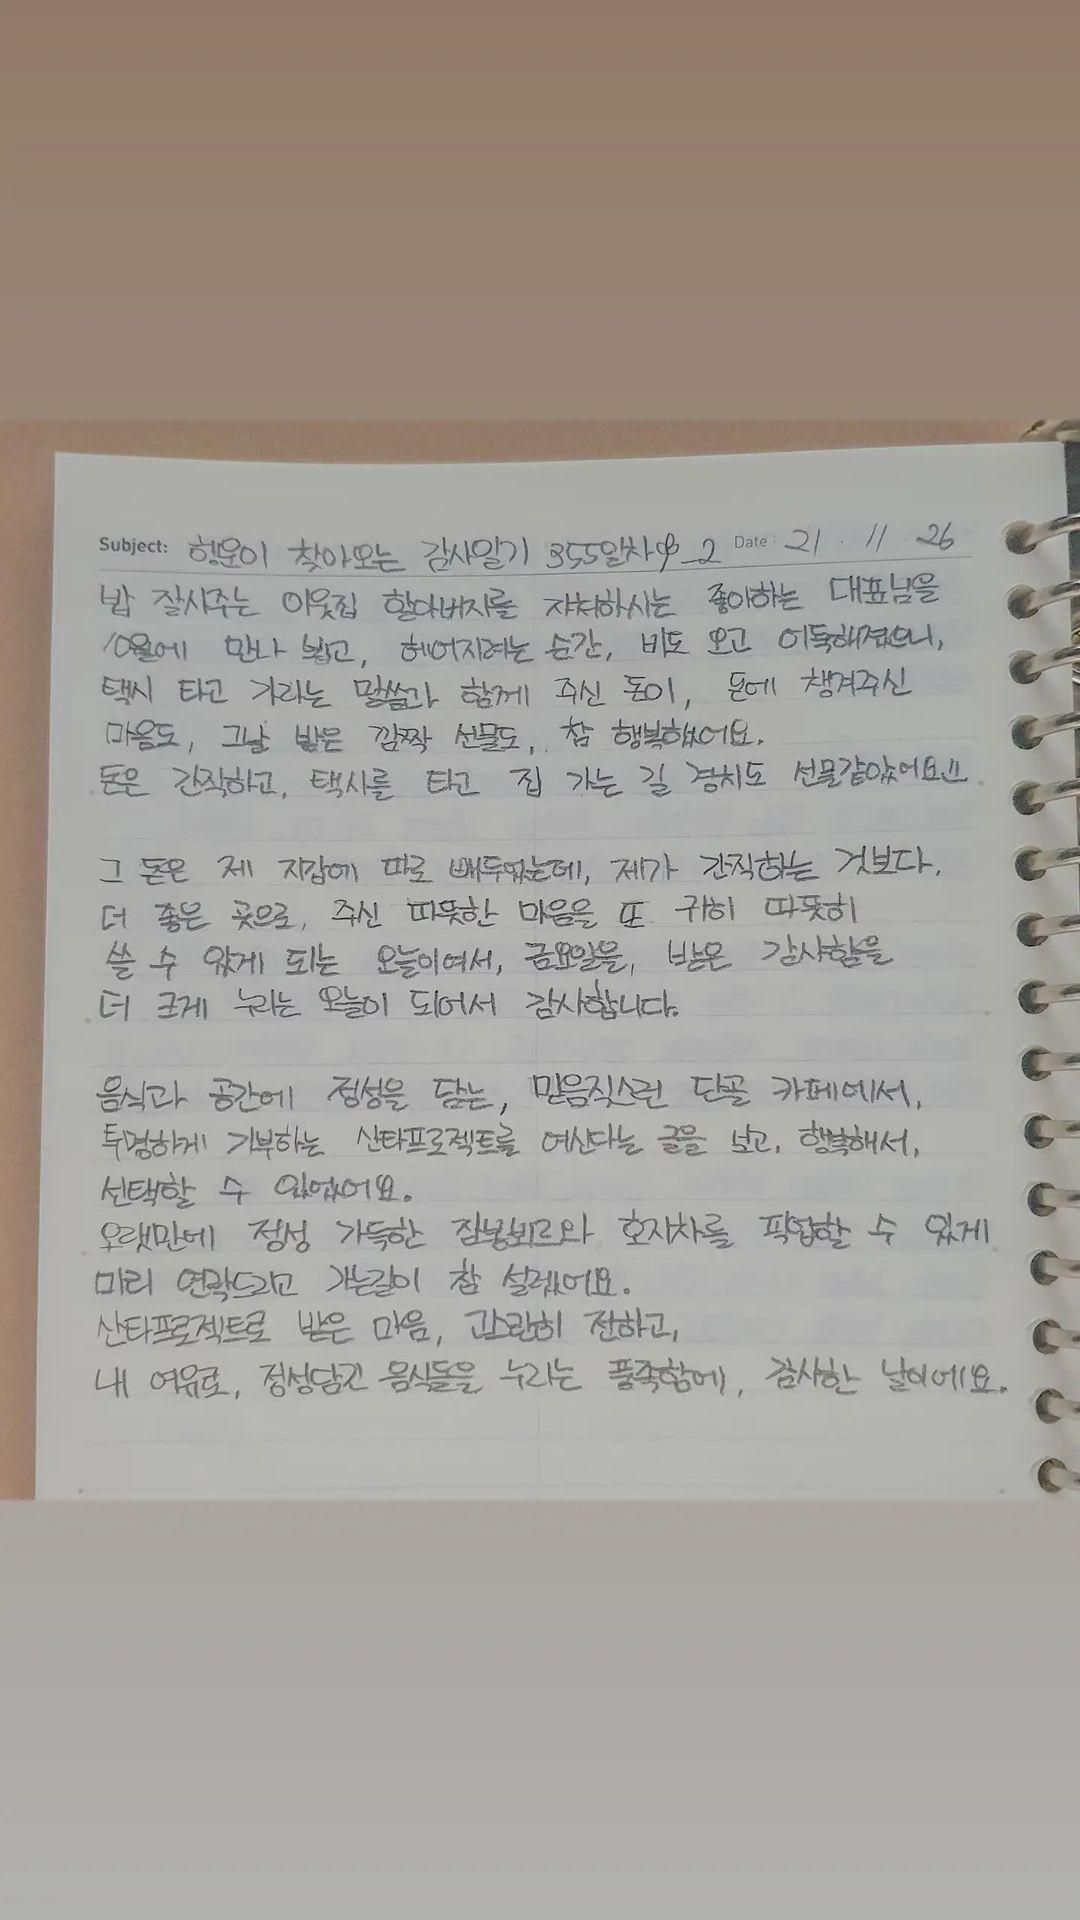 Subject: 행운이 찾아오는 감사일기 355일차中_2 Date : 21 . 11 . 26
밥 잘사주는 이웃집 할아버지를 자처하시는 좋아하는 대표님을
10월에 만나 뵙고, 헤어지려는 순간, 비도 오고 어둑해졌으니,
택시 타고 가라는 말씀과 함께 주신 돈이, 돈에 챙겨주신
마음도, 그날 받은 깜짝 선물도, 참 행복했어요.
돈은 간직하고, 택시를 타고 집 가는 길 경치도 선물같았어요!!
그 돈은 제 지갑에 따로 빼두었는데, 제가 간직하는 것보다.
더 좋은 곳으로, 주신 따뜻한 마음을 또 귀히 따뜻히
쓸 수 있게 되는 오늘이여서, 금요일을, 받은 감사함을
더 크게 누리는 오늘이 되어서 감사합니다.
음식과 공간에 정성을 담는, 믿음직스런 단골 카페에서,
투명하게 기부하는 산타프로젝트를 여신다는 글을 보고, 행복해서,
선택할 수 있었어요.
오랫만에 정성 가득한 잠봉뵈르와 호지차를 픽업할 수 있게
미리 연락드리고 가는길이 참 설레었어요.
산타프로젝트로 받은 마음, 전하고,
내 여유로, 정성담긴 음식들을 누리는 풍족함에, 감사한 날이에요.